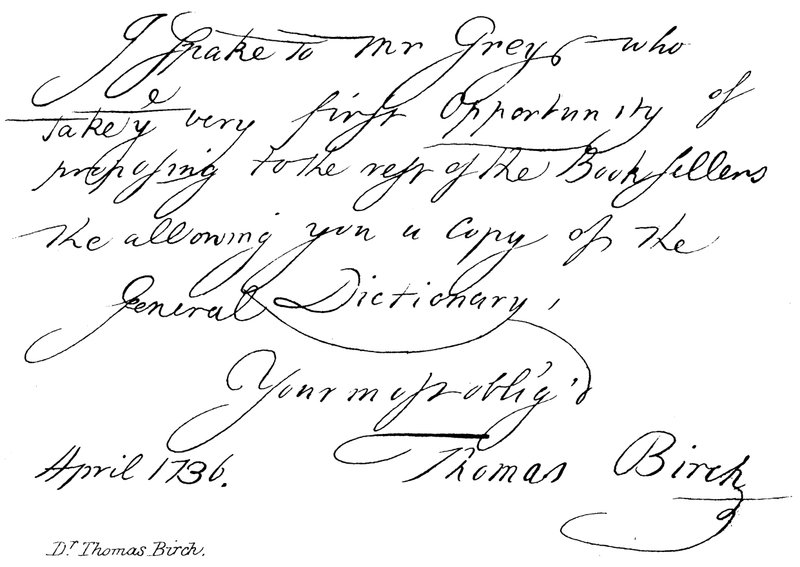 I spake to Mr Grey, who
take yᵉ very first Opportunity of
proposing to the rest of the Booksellers
the allowing you a Copy of the
General Dictionary,
Your most oblig'd
April 1736. Thomas Birch
Dʳ Thomas Birch.